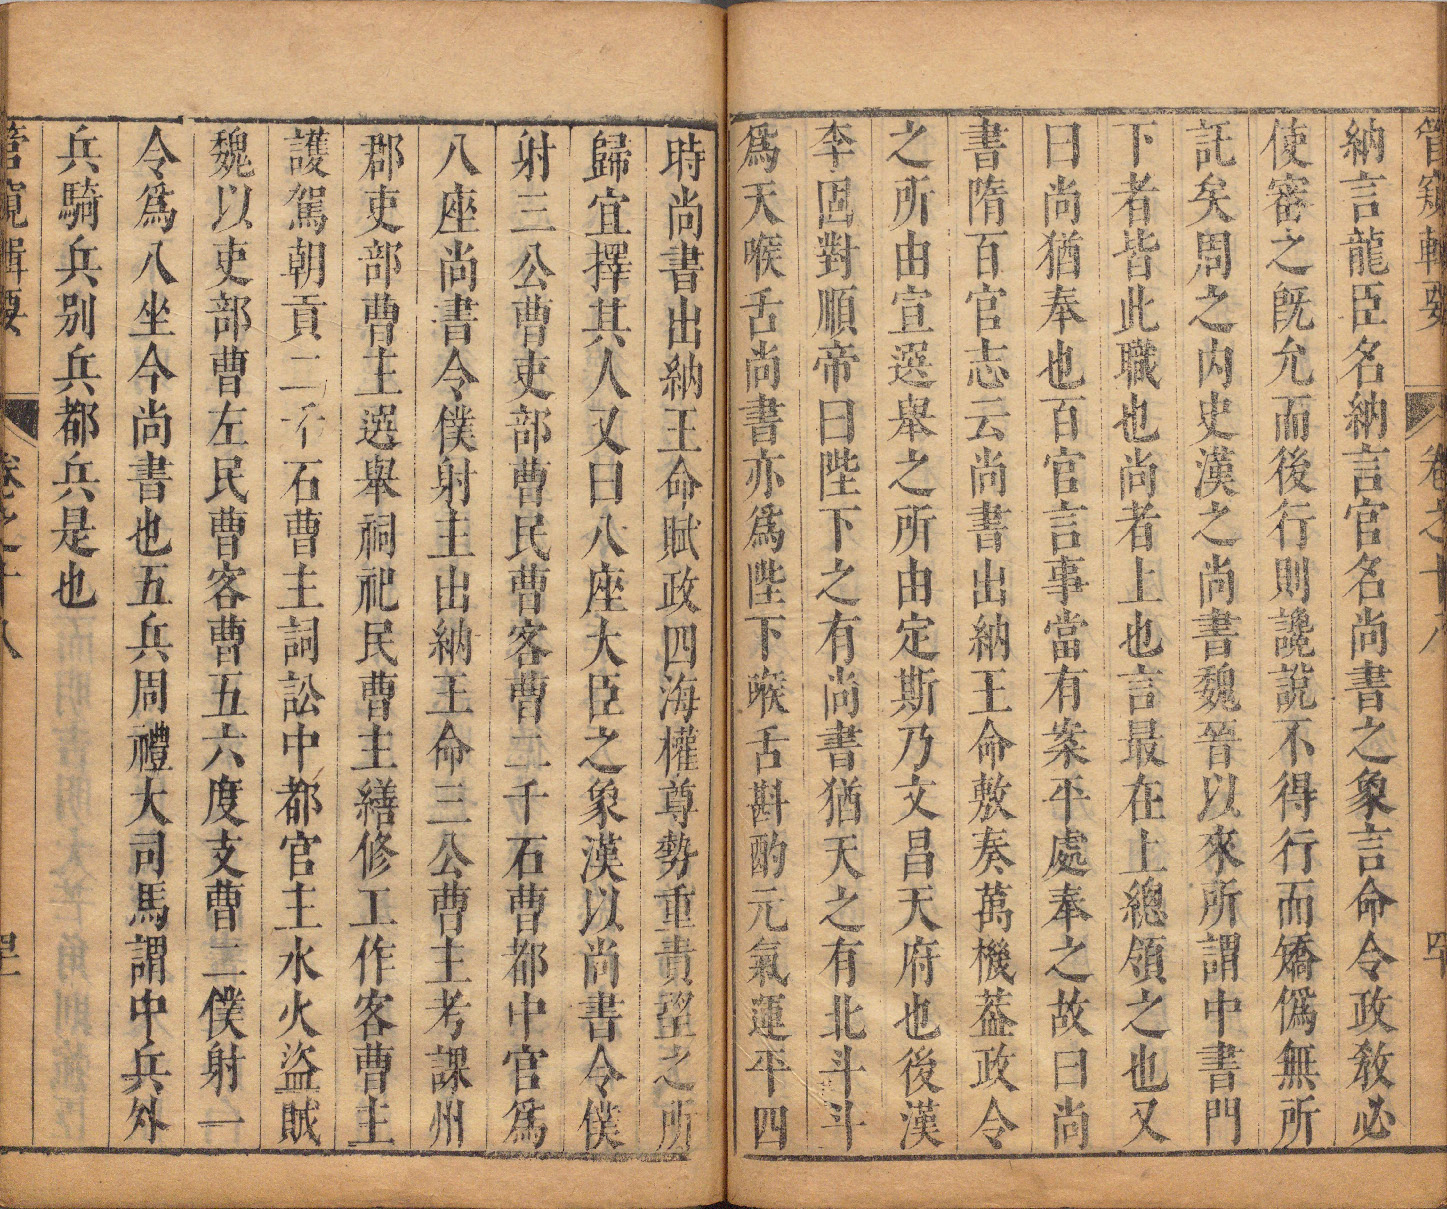 管窺輯要 卷之十八
納言龍臣名納言官名尚書之象言命令政敎必
使審之旣允而後行則讒說不得行而矯僞無所
託矣周之內史漢之尚書魏晉以來所謂中書門
下者皆此職也尚者上也言最在上總領之也又
曰尚猶奉也百官言事當有案平處奉之故曰尚
書隋百官志云尚書出納王命敷奏萬機葢政令
之所由宣選舉之所由定斯乃文昌天府也後漢
李固對順帝曰陛下之有尚書猶天之有北斗斗
爲天喉舌尚書亦爲陛下喉舌斟酌元氣運平四
時尚書出納王命賦政四海權尊勢重責望之所
歸宜擇其人又曰八座大臣之象漢以尚書令僕
射三公曹吏部曹民曹客曹二千石曹都中官爲
八座尚書令僕射主出納王命三公曹主考課州
郡吏部曹主選舉祠祀民曹主繕修工作客曹主
護駕朝貢二千石曹主詞訟中都官主水火盜賊
魏以吏部曹左民曹客曹五六度支曹二僕射一
令爲八坐今尚書也五兵周禮大司馬謂中兵外
兵騎兵别兵都兵是也
管窺輯要 卷之十八